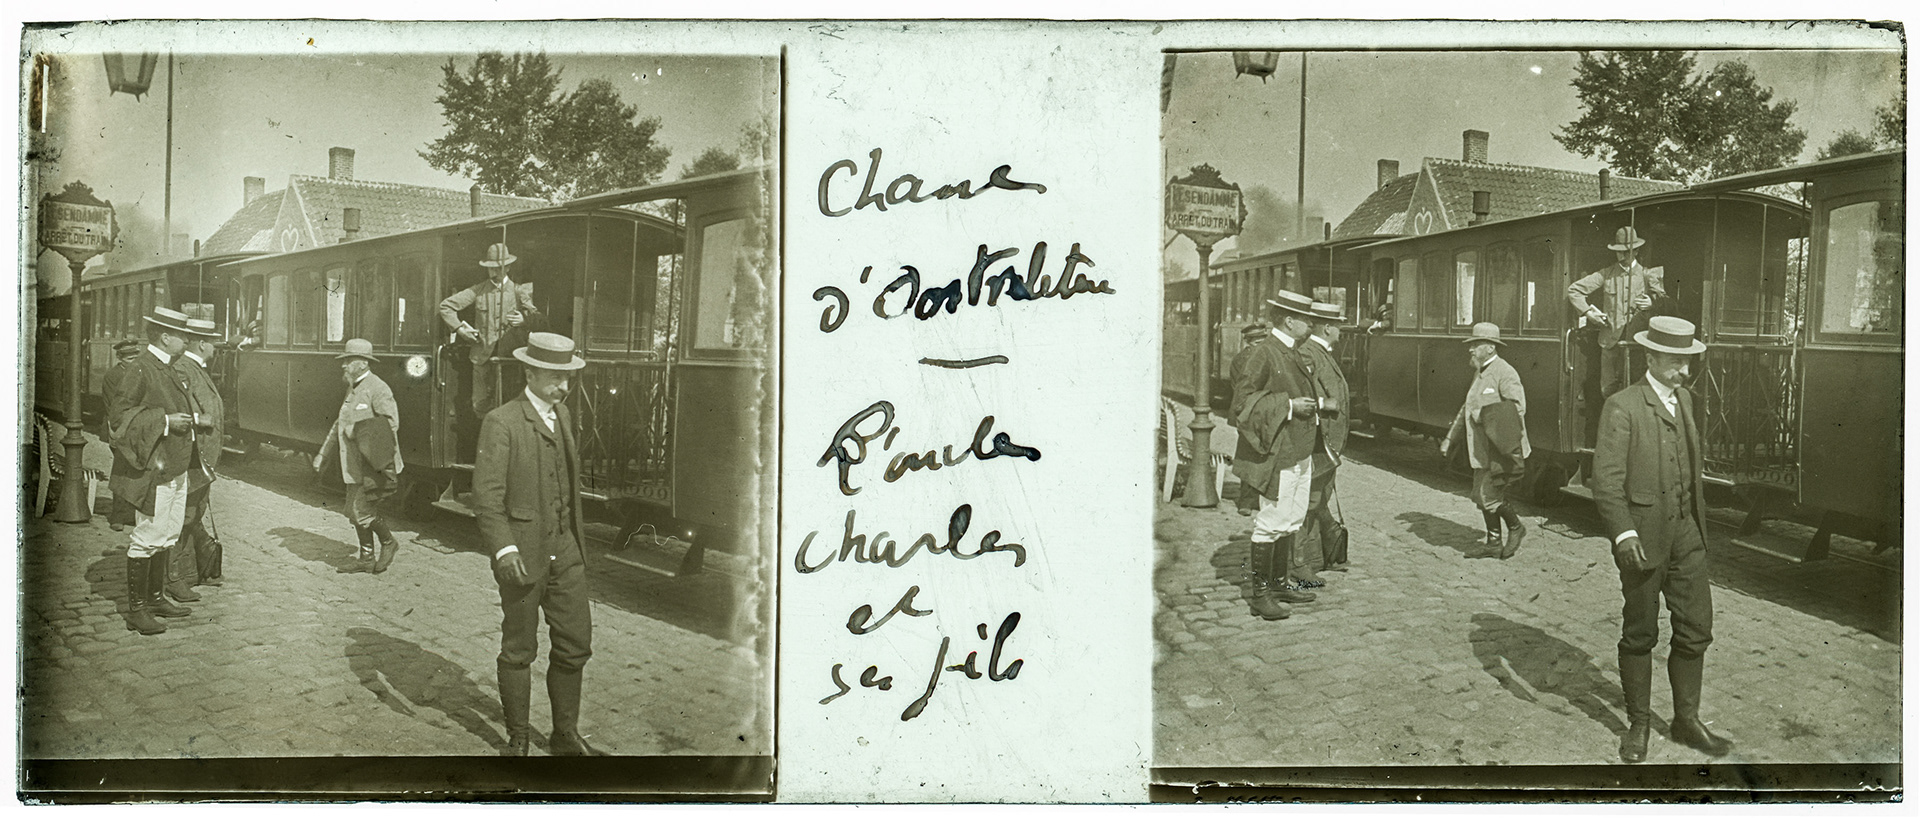 LISSENDAMME
ARRÊT DU TRAIN
Chasse
d'Oostroleteu
—
L'oncle
Charles
et
ses fils
LISSENDAMME
ARRÊT DU TRAIN